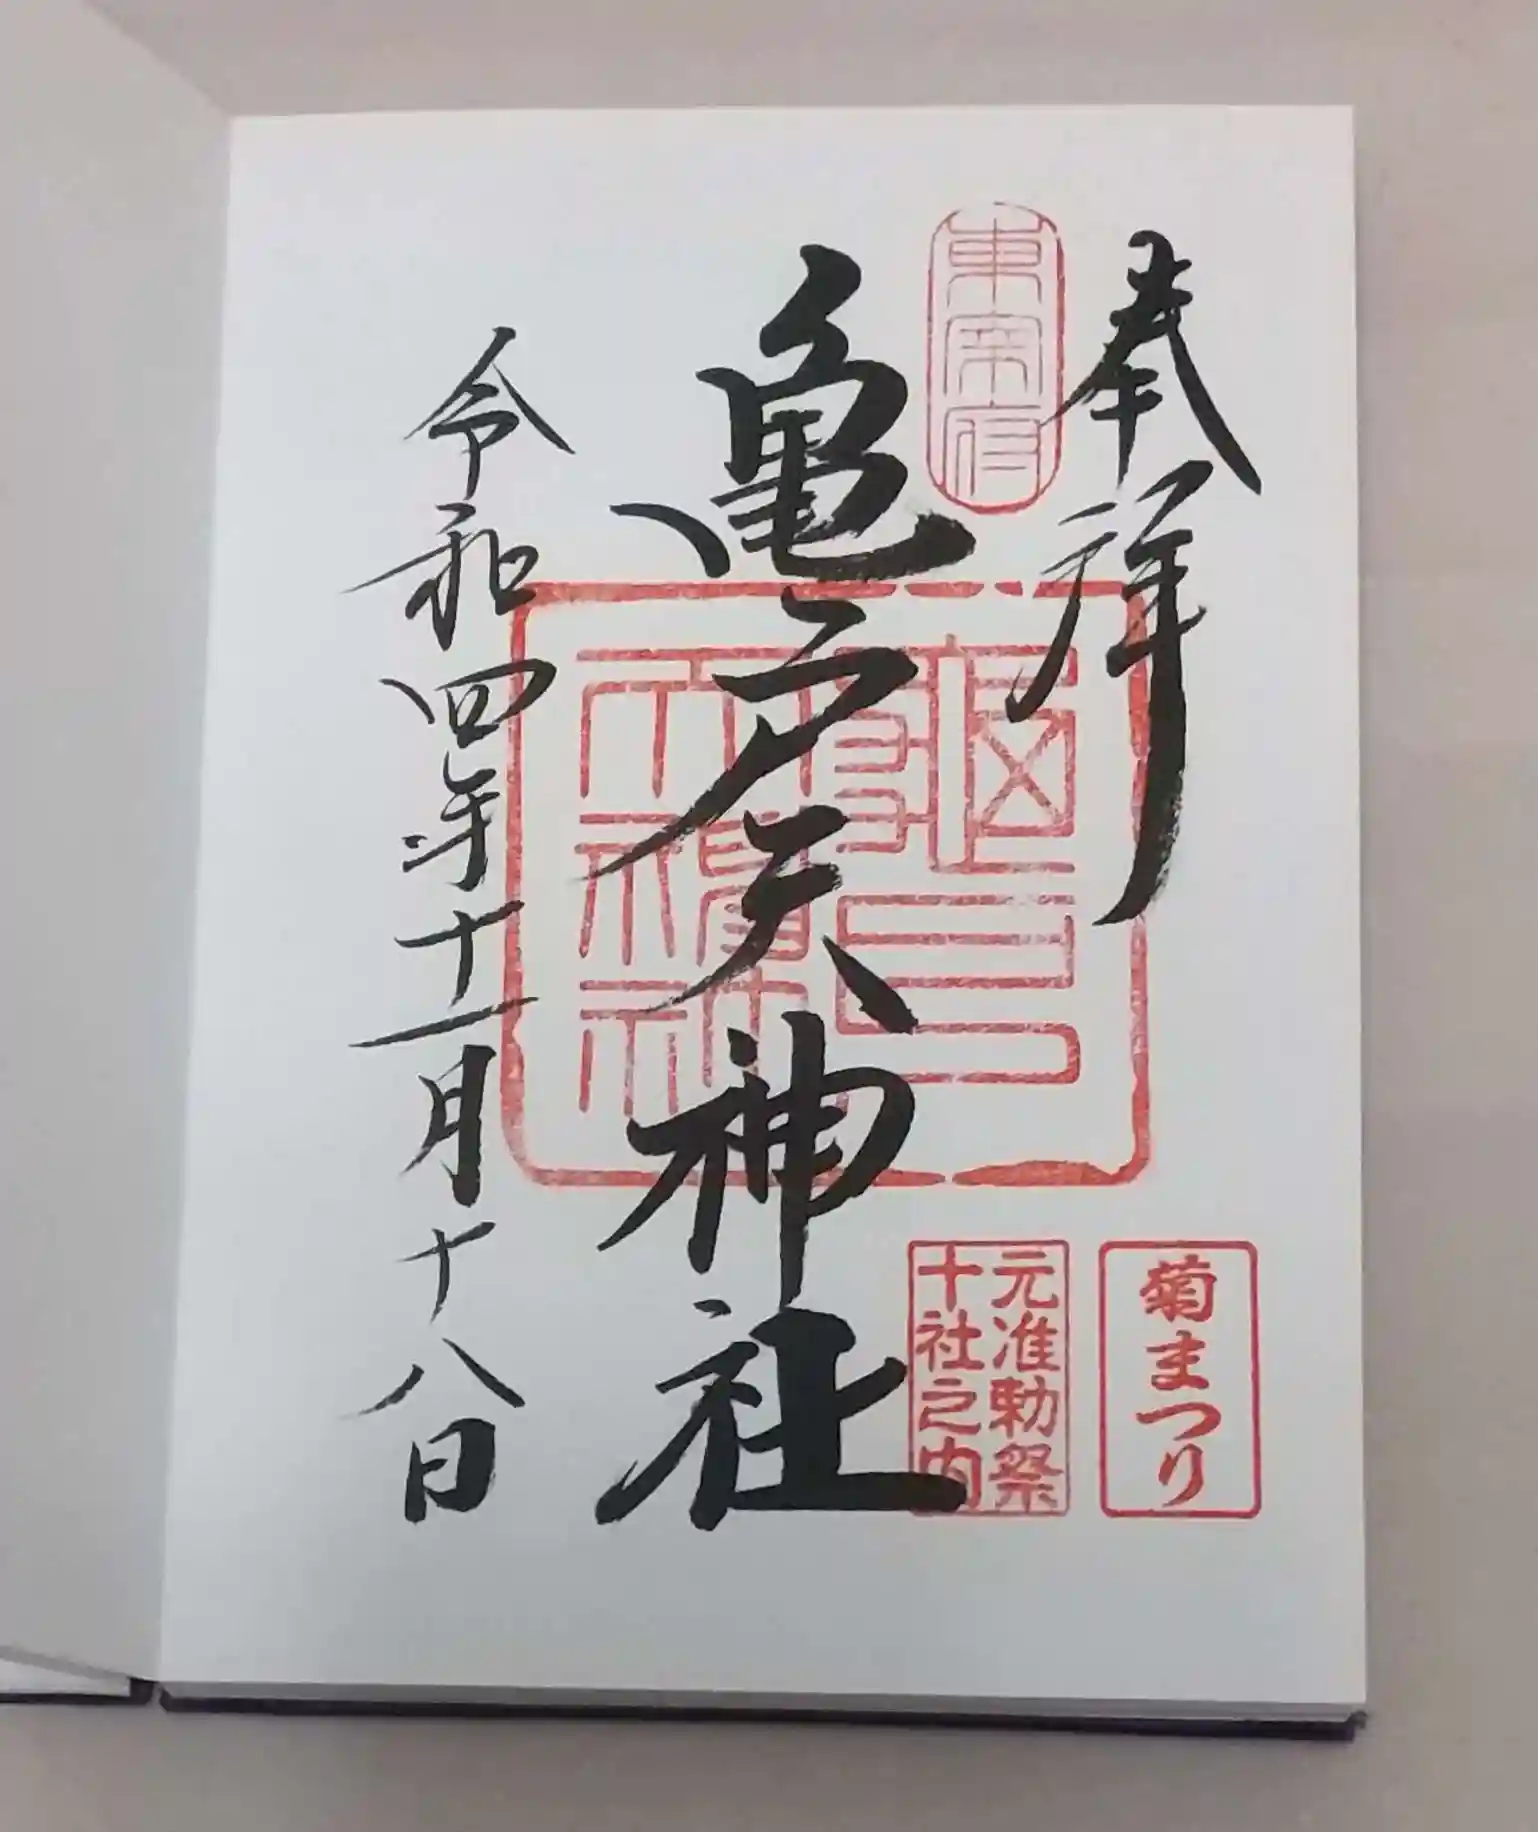 奉拝
東宰府
亀戸天神社
令和四年十一月十八日
菊まつり
元准勅祭
十社之内